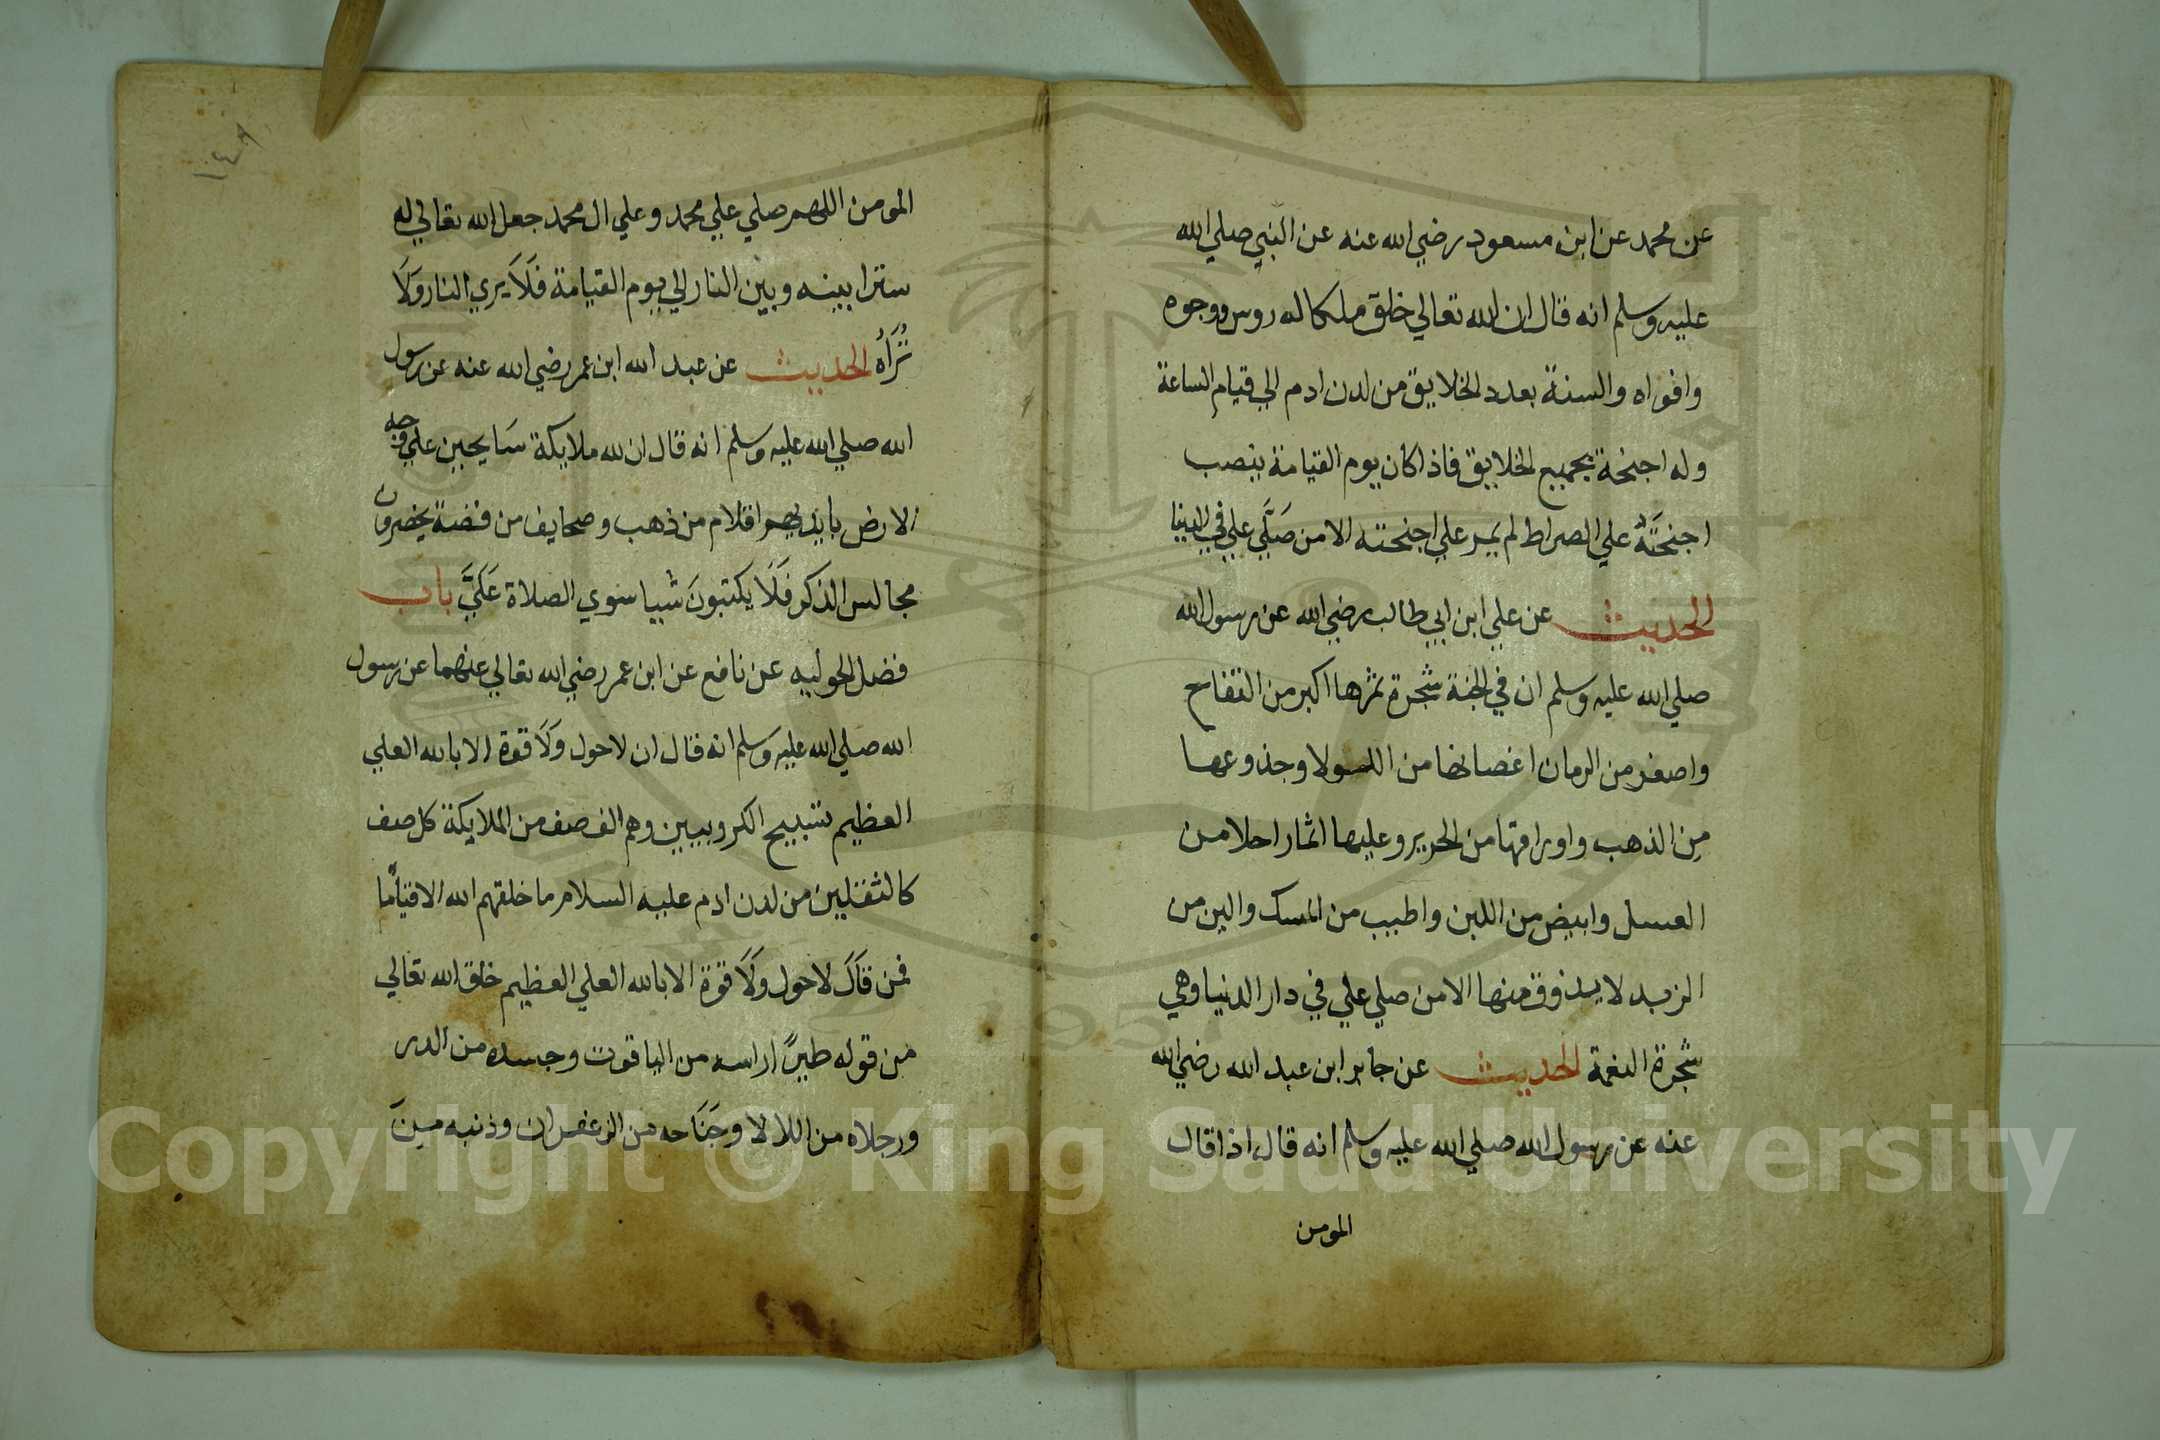 عن محمد عن ابن مسعود رضي الله عنه عن النبي صلي الله
عليه وسلم انه قال ان الله تعالي خلق ملكا له روس ووجوه
وافواه والسنة بعدد الخلايق من لدن ادم الي قيام الساعة
وله اجنحة بجميع الخلايق فاذا كان يوم القيامة ينصب
اجنحَتَهُ علي الصراط لم يمر علي اجنحته الا من صَلَّي علي في الدنيا
الحديث عن علي ابن ابي طالب رضي الله عن رسول الله
صلي الله عليه وسلم ان في الجنة شجرة ثمرها اكبر من التفاح
واصغر من الرمان اغصانها من اللولا وجذوعها
من الذهب واوراقها من الحرير وعليها اثمار احلا من
العسل وابيض من اللبن واطيب من المسك والين من
الزبد لا يذوق منها الا من صلي علي في دار الدنيا وهي
شجرة النعمة الحديث عن جابر ابن عبد الله رضي الله
عنه عن رسول الله صلي الله عليه وسلم انه قال اذا قال
المومن
١٤٩
المومن اللهم صلي علي محمد وعلي ال محمد جعل الله تعالي له
سترا بينه وبين النار الي يوم القيامة فَلَا يري النار وَلَا
تُرَاُه الحديث عن عبد الله ابن عمر رضي الله عنه عن رسول
الله صلي الله عليه وسلم انه قال ان لله ملايكة سَايحين علي وجه
الارض بايديهم اقلام من ذهب وصحايف من فضة يحضرون
مجالس الذكر فَلَا يكتبونَ شيا سوي الصلاة عَلَيَّ باب
فضل الحوليه عن نافع عن ابن عمر رضي الله تعالي عنهما عن رسول
الله صلي الله عليه وسلم انه قال ان لا حول وَلَا قوة الا بالله العلي
العظيم تسبيح الكروبيين وهم الف صف من الملايكة كل صف
كالثقلين من لدن ادم عليه السلام ما خلقهم الله الا قيامًا
فمن قَالَ لا حول وَلَا قوة الا بالله العلي العظيم خلق الله تعالي
من قوله طيرًا راسه من الياقوت وجسده من الدر
ورجلاه من اللالا وجَنَاحه من الزعفران وذنبه مينَ
Copyright © King Saud University
1957